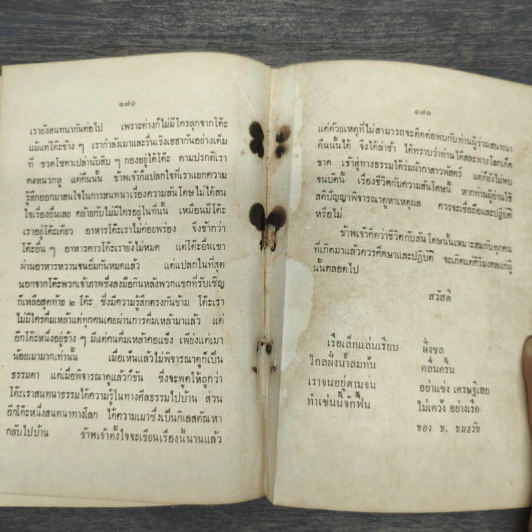 ๑๗๐
เรายังสนทนากันต่อไป เพราะต่างก็ไม่มีใครลุกจากโต๊ะ
แม้แต่โต๊ะข้าง ๆ เรากำลังเมาและรื่นเริงเฮฮากันอย่างเต็ม
ที่ ขวดโซดาเปล่านับสิบ ๆ กองอยู่ใต้โต๊ะ ตามปรกติเรา
คงหนวกหู แต่คืนนั้น ข้าพเจ้าก็แปลกใจที่เราแยกความ
รู้สึกออกมาสนใจในการสนทนาเรื่องความสันโดษไม่ได้สน
ใจเรื่องอื่นเลย คล้ายกับไม่มีใครอยู่ในที่นั้น เหมือนมีโต๊ะ
เราอยู่โต๊ะเดียว อาหารโต๊ะเราไม่ค่อยพร่อง จึงช้ากว่า
โต๊ะอื่น ๆ อาหารคาวโต๊ะเรายังไม่หมด แต่โต๊ะอื่นเขา
ผ่านอาหารหวานจนอิ่มกันหมดแล้ว แต่แปลกในที่สุด
นอกจากโต๊ะพวกเจ้าภาพซึ่งลงมือกินหลังพวกแขกที่รับเชิญ
ก็เหลือสุดท้าย ๒ โต๊ะ ซึ่งมีความรู้สึกตรงกันข้าม โต๊ะเรา
ไม่มีใครดื่มเหล้าแต่ทุกคนเคยผ่านการดื่มเหล้ามาแล้ว แต่
อีกโต๊ะหนึ่งอยู่ข้าง ๆ มีแต่คนดื่มเหล้าคอแข็ง เพียงแต่เมา
น้อยเมามากเท่านั้น เมื่อเห็นแล้วไม่พิจารณาดูก็เป็น
ธรรมดา แต่เมื่อพิจารณาดูแล้วก็ขัน ซึ่งจะพูดให้ถูกว่า
โต๊ะเราสนทนาธรรมได้ความรู้ในทางศีลธรรมไปบ้าน ส่วน
อีกโต๊ะหนึ่งสนทนาทางโลก ได้ความเมาซึ่งเป็นกิเลสตัณหา
กลับไปบ้าน ข้าพเจ้าตั้งใจจะเขียนเรื่องนี้นานแล้ว
๑๗๑
แต่ด้วยเหตุที่ไม่สามารถจะติดต่อพบกับท่านผู้ร่วมสนทนา
คืนนั้นได้ จึงได้ล่าช้า ได้ทราบว่าท่านได้สละทางโลกเด็ด
ขาด เข้าสู่ทางธรรมได้ร่มผ้ากาสาวพสตร์ แต่ก็ยังไม่พบ
จนบัดนี้ เรื่องชีวิตกับความสันโดษนี้ หากท่านผู้อ่านใช้
สติปัญญาพิจารณาดูหาเหตุผล ควรจะเชื่อถือและปฏิบัติ
หรือไม่
ข้าพเจ้าคิดว่าชีวิตกับสันโดษนั้นเหมาะสมกับทุกคน
ที่เกิดมาแล้วควรศึกษาและปฏิบัติ จะเกิดแต่สิริมงคลแก่ผู้
นั้นตลอดไป
สวัสดี
เรือเล็กแล่นเรียบ ฝั่งชล
ไกลฝั่งน้ำลมทัน คลื่นครืน
เราจนอยู่ตามจน อย่าแข่ง เศรษฐีเลย
ทำเช่นนี้จักฟื้น ไม่คว้ง อย่างเรือ
ของ ข.